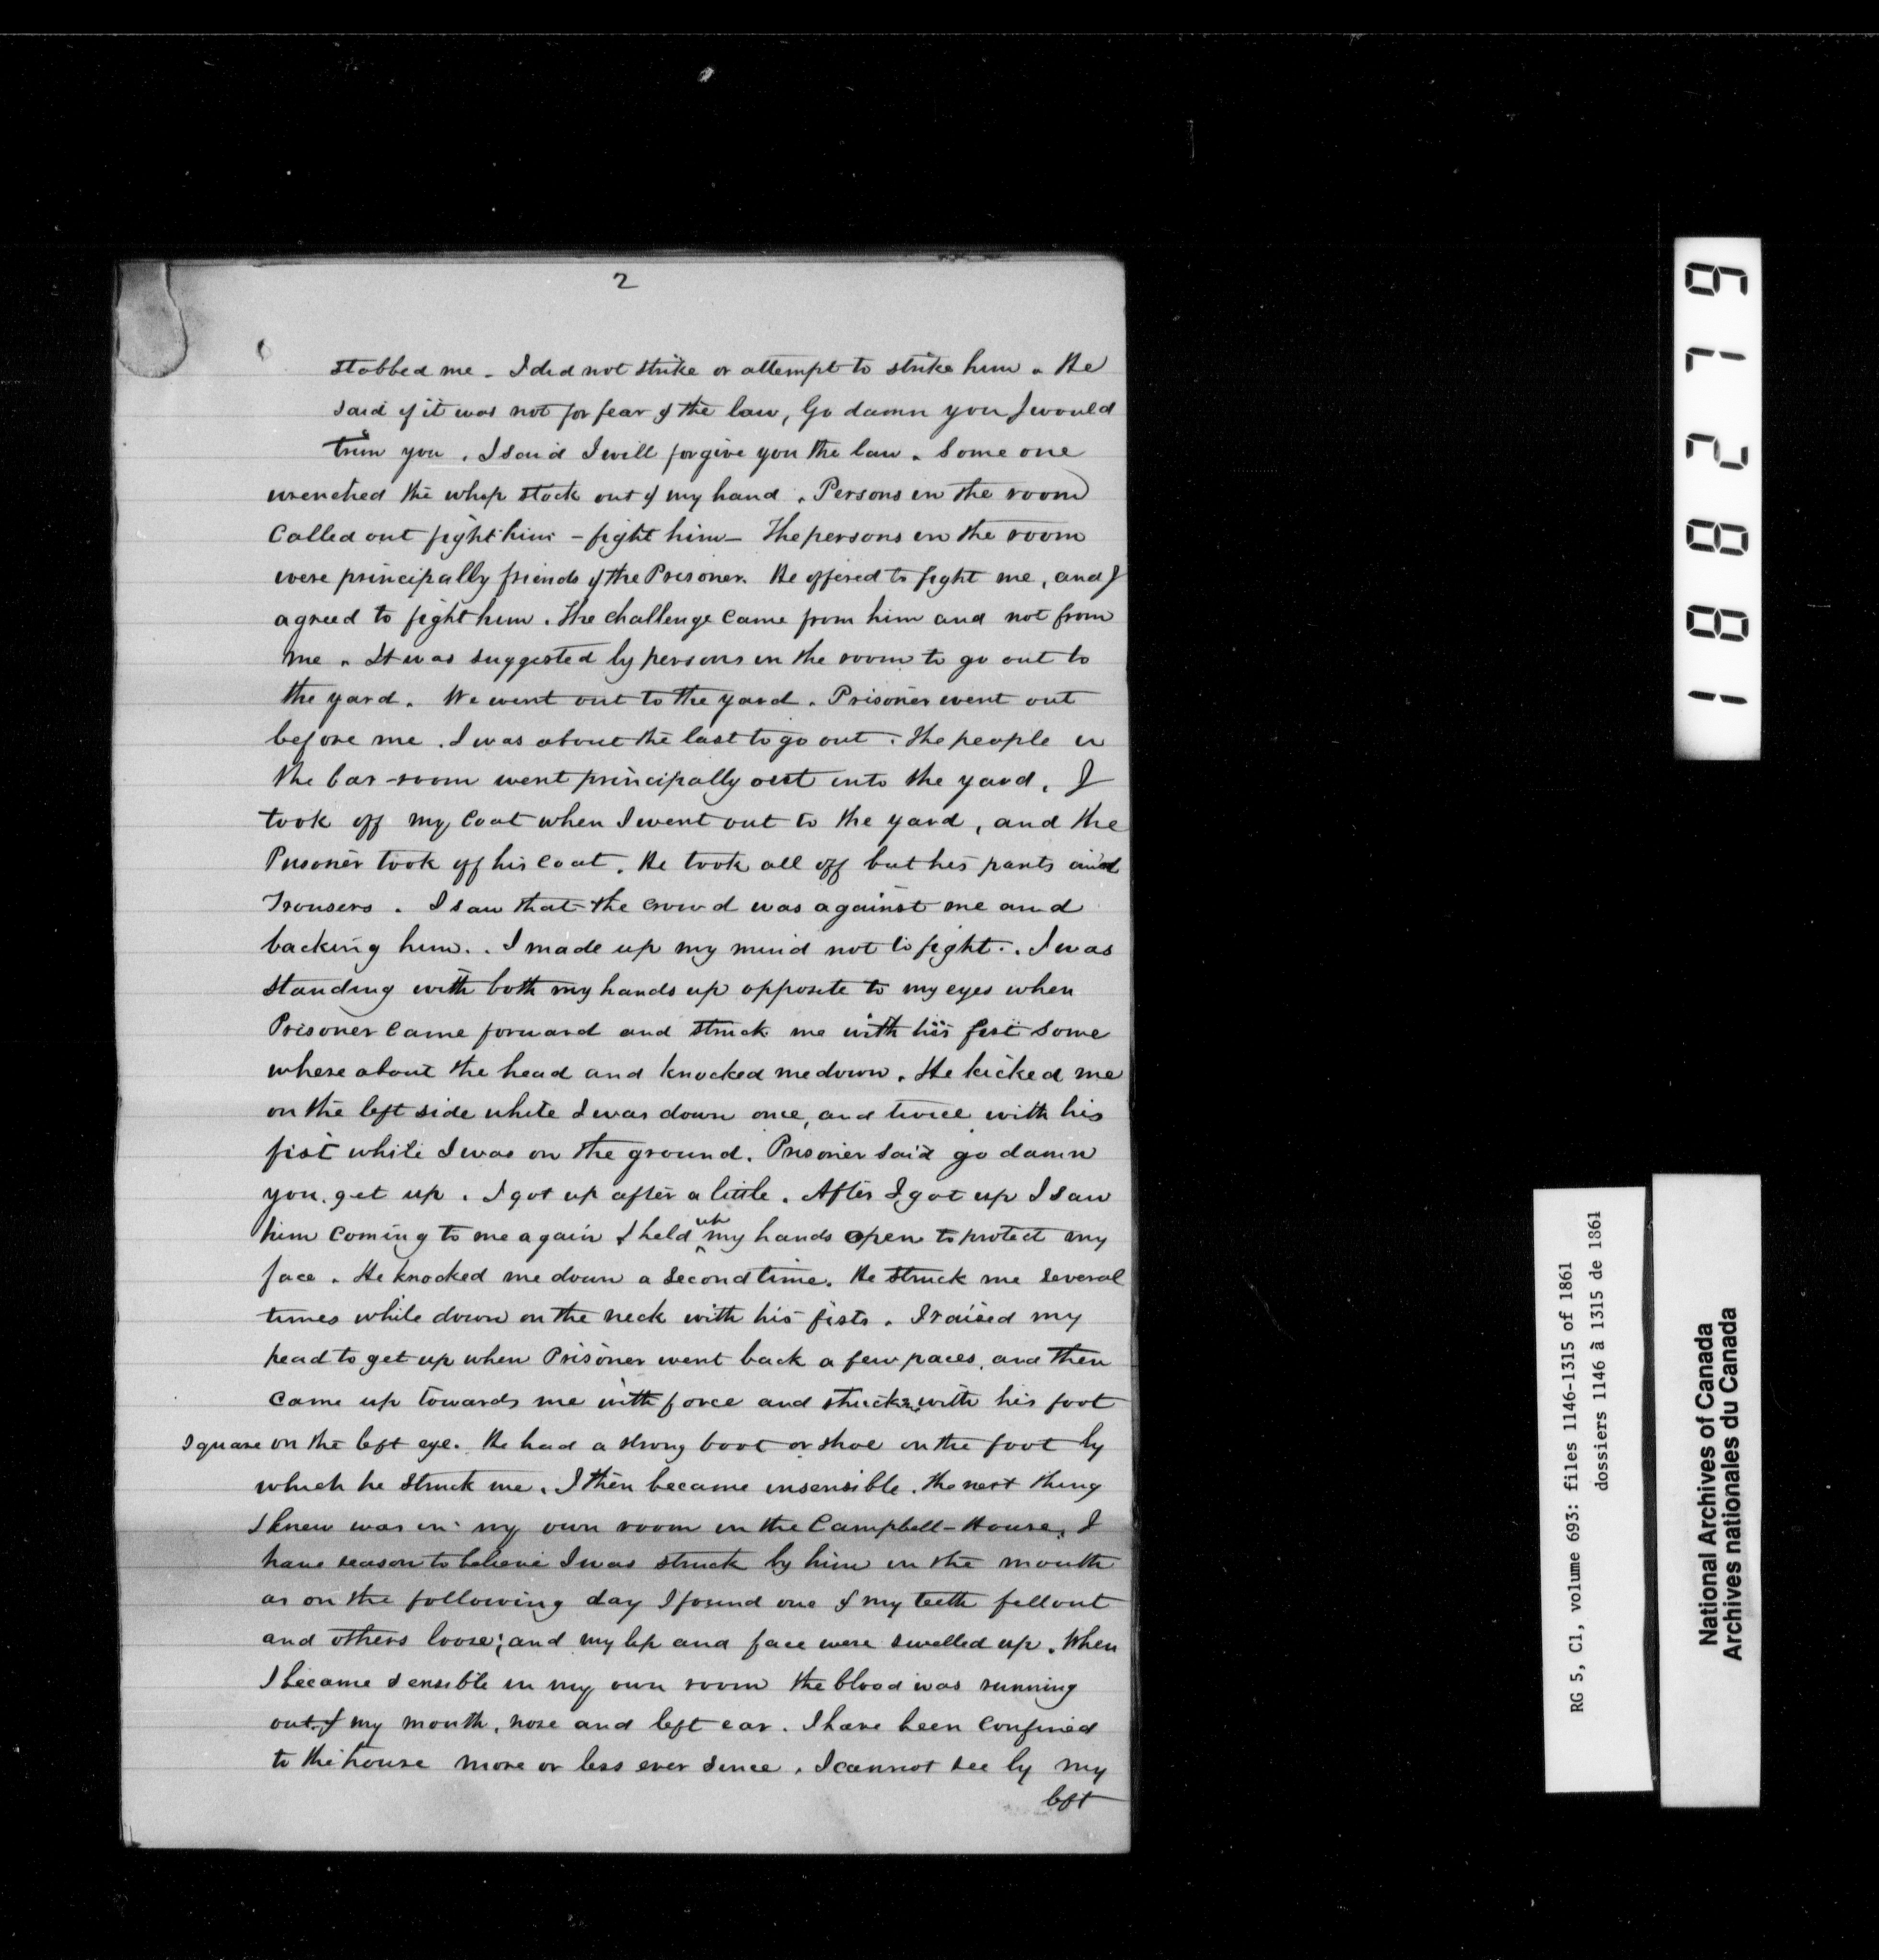 2
stabbed me - I did not strike or attempt to strike him. He
said if it was not for fear of the law, Go damn you I would
trim you. I said I will forgive you the law. Some one
wrenched the whip stock out of my hand. Persons in the room
called out fight him - fight him - The persons in the room
were principally friends of the Prisoner. He offered to fight me, and I
agreed to fight him. The challenge came from him and not from
me. It was suggested by persons in the room to go out to
the yard. We went out to the yard. Prisoner went out
before me. I was about the last to go out. The people in
the bar-room went principally out into the yard. I
took off my coat when I went out to the yard, and the
Prisoner took off his coat. He took all off but his pants and
Trousers. I saw that the crowd was against me and
backing him. I made up my mind not to fight. I was
standing with both my hands up opposite to my eyes when
Prisoner came forward and struck me with his fist some
where about the head and knocked me down. He kicked me
on the left side while I was down once, and twice with his
fist while I was on the ground. Prisoner said go damn
you get up. I got up after a little. After I got up I saw
him coming to me again I held up my hands open to protect my
face. He knocked me down a second time. He struck me several
times while down on the neck with his fists. I raised my
head to get up when Prisoner went back a few paces, and then
came up towards me with force and struck me with his foot
square on the left eye. He had a strong boot or shoe on the foot by
which he struck me. I then became insensible. The next thing
I knew was in my own room in the Campbell-House. I
have reason to believe I was struck by him in the mouth
as on the following day I found one of my teeth fell out
and others loose; and my lip and face were swelled up. When
I became sensible in my own room the blood was running
out of my mouth, nose and left ear. I have been confined
to the house more or less ever since. I cannot see by my
left
188279
RG 5, C1, volume 693: files 1146-1315 of 1861
dossiers 1146 à 1315 de 1861
National Archives of Canada
Archives nationales du Canada